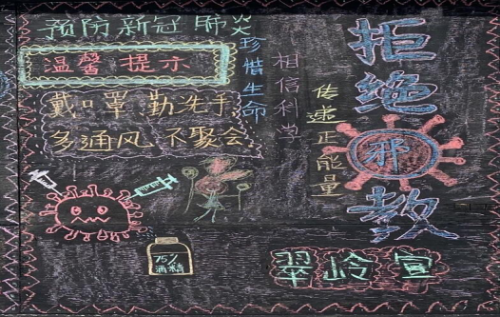 预防新冠肺炎
温馨提示
戴口罩 勤洗手
多通风 不聚会
珍惜生命
相信科学
传递正能量
拒绝邪教
75%
酒精
翠岭宣